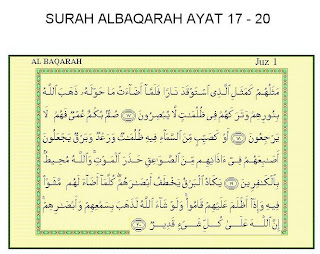 SURAH ALBAQARAH AYAT 17 - 20
AL BAQARAH Juz 1
مَثَلُهُمْ كَمَثَلِ ٱلَّذِى ٱسْتَوْقَدَ نَارًا فَلَمَّآ أَضَآءَتْ مَا حَوْلَهُۥ ذَهَبَ ٱللَّهُ
بِنُورِهِمْ وَتَرَكَهُمْ فِى ظُلُمَٰتٍ لَّا يُبْصِرُونَ ﴿١٧﴾ صُمٌّۢ بُكْمٌ عُمْىٌ فَهُمْ لَا
يَرْجِعُونَ ﴿١٨﴾ أَوْ كَصَيِّبٍ مِّنَ ٱلسَّمَآءِ فِيهِ ظُلُمَٰتٌ وَرَعْدٌ وَبَرْقٌ يَجْعَلُونَ
أَصَٰبِعَهُمْ فِىٓ ءَاذَانِهِم مِّنَ ٱلصَّوَٰعِقِ حَذَرَ ٱلْمَوْتِ وَٱللَّهُ مُحِيطٌۢ
بِٱلْكَٰفِرِينَ ﴿١٩﴾ يَكَادُ ٱلْبَرْقُ يَخْطَفُ أَبْصَٰرَهُمْ كُلَّمَآ أَضَآءَ لَهُم مَّشَوْا۟
فِيهِ وَإِذَآ أَظْلَمَ عَلَيْهِمْ قَامُوا۟ وَلَوْ شَآءَ ٱللَّهُ لَذَهَبَ بِسَمْعِهِمْ وَأَبْصَٰرِهِمْ
إِنَّ ٱللَّهَ عَلَىٰ كُلِّ شَىْءٍ قَدِيرٌ ﴿٢٠﴾